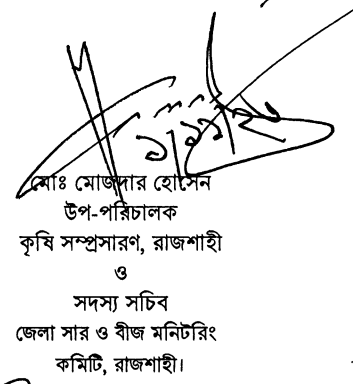 মোঃ মোজদার হোসেন
উপ-পরিচালক
কৃষি সম্প্রসারণ, রাজশাহী
ও
সদস্য সচিব
জেলা সার ও বীজ মনিটরিং
কমিটি, রাজশাহী।